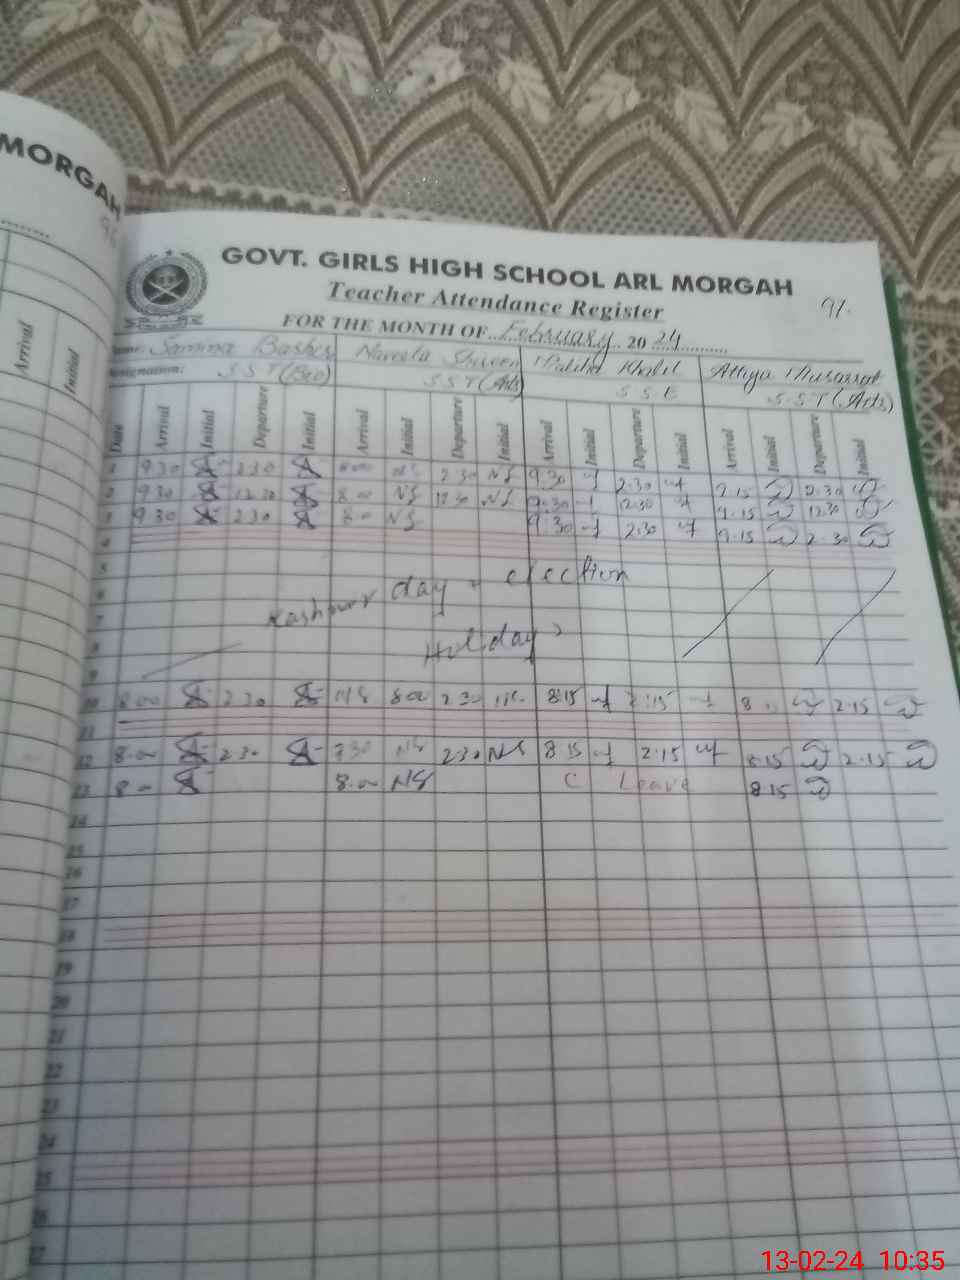 MORGAH
Arrival Initial
GOVT. GIRLS HIGH SCHOOL ARL MORGAH
Teacher Attendance Register
91.
FOR THE MONTH OF February 2024
Samma Bashir Khalil Attiya Musarrat
S.S.T (Bio) S.S.T (Arts) S.S.E S.S.T (Arts)
Date Arrival Initial Departure Initial Arrival Initial Departure Initial Arrival Initial Departure Initial Arrival Initial Departure Initial
9.30 2.30 8.00 NS 2.30 NS 9.30 2.30 9.15 2.30
9.30 12.30 8.00 NS 12.30 NS 9.30 12.30 9.15 12.30
9.30 2.30 8.00 NS 9.30 2.30 9.15 2.30
4
5
Kashmir day election
6
7
8
Holiday
9
10 8.00 2.30 NS 8.00 2.30 8.15 2.15 8 2.15
11
12 8.00 2.30 7.30 NS 2.30 NS 8.15 2.15 8.15 2.15
13 8.00 8.00 NS C Leave 8.15
14
15
16
17
18
19
20
21
22
23
24
25
26
27
13-02-24 10:35